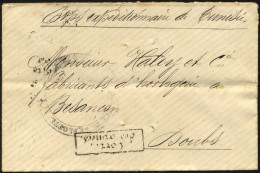 Corps expéditionnaire de Tunisie
Monsieur Hatry et Cie
Fabricants d'horlogerie à
Besançon
Doubs
Corr.
des armées